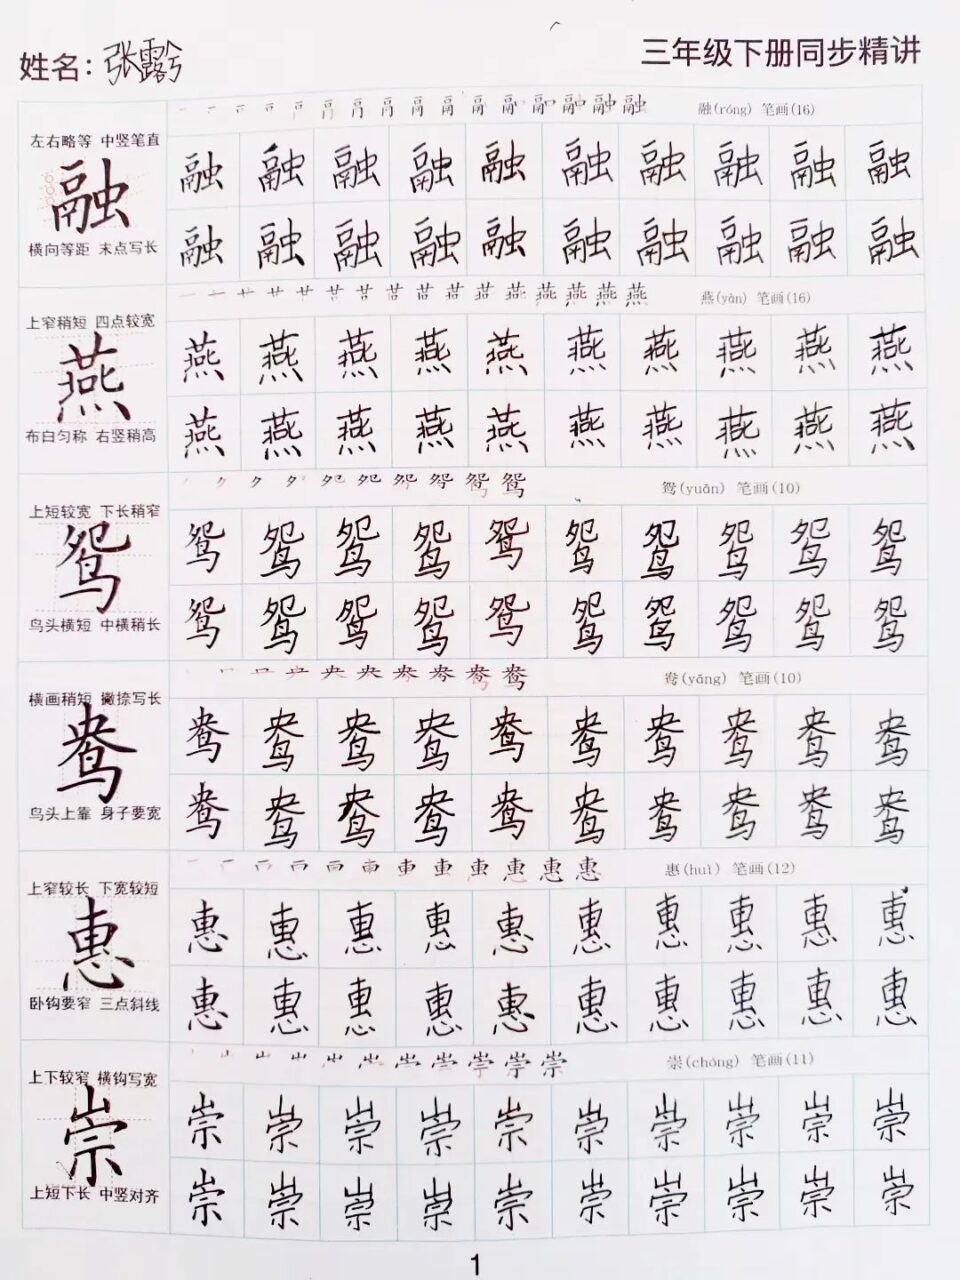 姓名：张露兮
三年级下册同步精讲
左右略等 中竖笔直
融
横向等距 末点写长
融(róng) 笔画(16)
融 融 融 融 融 融 融 融 融 融
融 融 融 融 融 融 融 融 融 融
上窄稍短 四点较宽
燕
布白匀称 右竖稍高
燕(yàn) 笔画(16)
燕 燕 燕 燕 燕 燕 燕 燕 燕 燕
燕 燕 燕 燕 燕 燕 燕 燕 燕 燕
上短较宽 下长稍窄
鸳
鸟头横短 中横稍长
鸳(yuān) 笔画(10)
鸳 鸳 鸳 鸳 鸳 鸳 鸳 鸳 鸳 鸳
鸳 鸳 鸳 鸳 鸳 鸳 鸳 鸳 鸳 鸳
横画稍短 撇捺写长
鸯
鸟头上靠 身子要宽
鸯(yāng) 笔画(10)
鸯 鸯 鸯 鸯 鸯 鸯 鸯 鸯 鸯 鸯
鸯 鸯 鸯 鸯 鸯 鸯 鸯 鸯 鸯 鸯
上窄较长 下宽较短
惠
卧钩要窄 三点斜线
惠(huì) 笔画(12)
惠 惠 惠 惠 惠 惠 惠 惠 惠 惠
惠 惠 惠 惠 惠 惠 惠 惠 惠 惠
上下较窄 横钩写宽
崇
上短下长 中竖对齐
崇(chóng) 笔画(11)
崇 崇 崇 崇 崇 崇 崇 崇 崇 崇
崇 崇 崇 崇 崇 崇 崇 崇 崇 崇
1